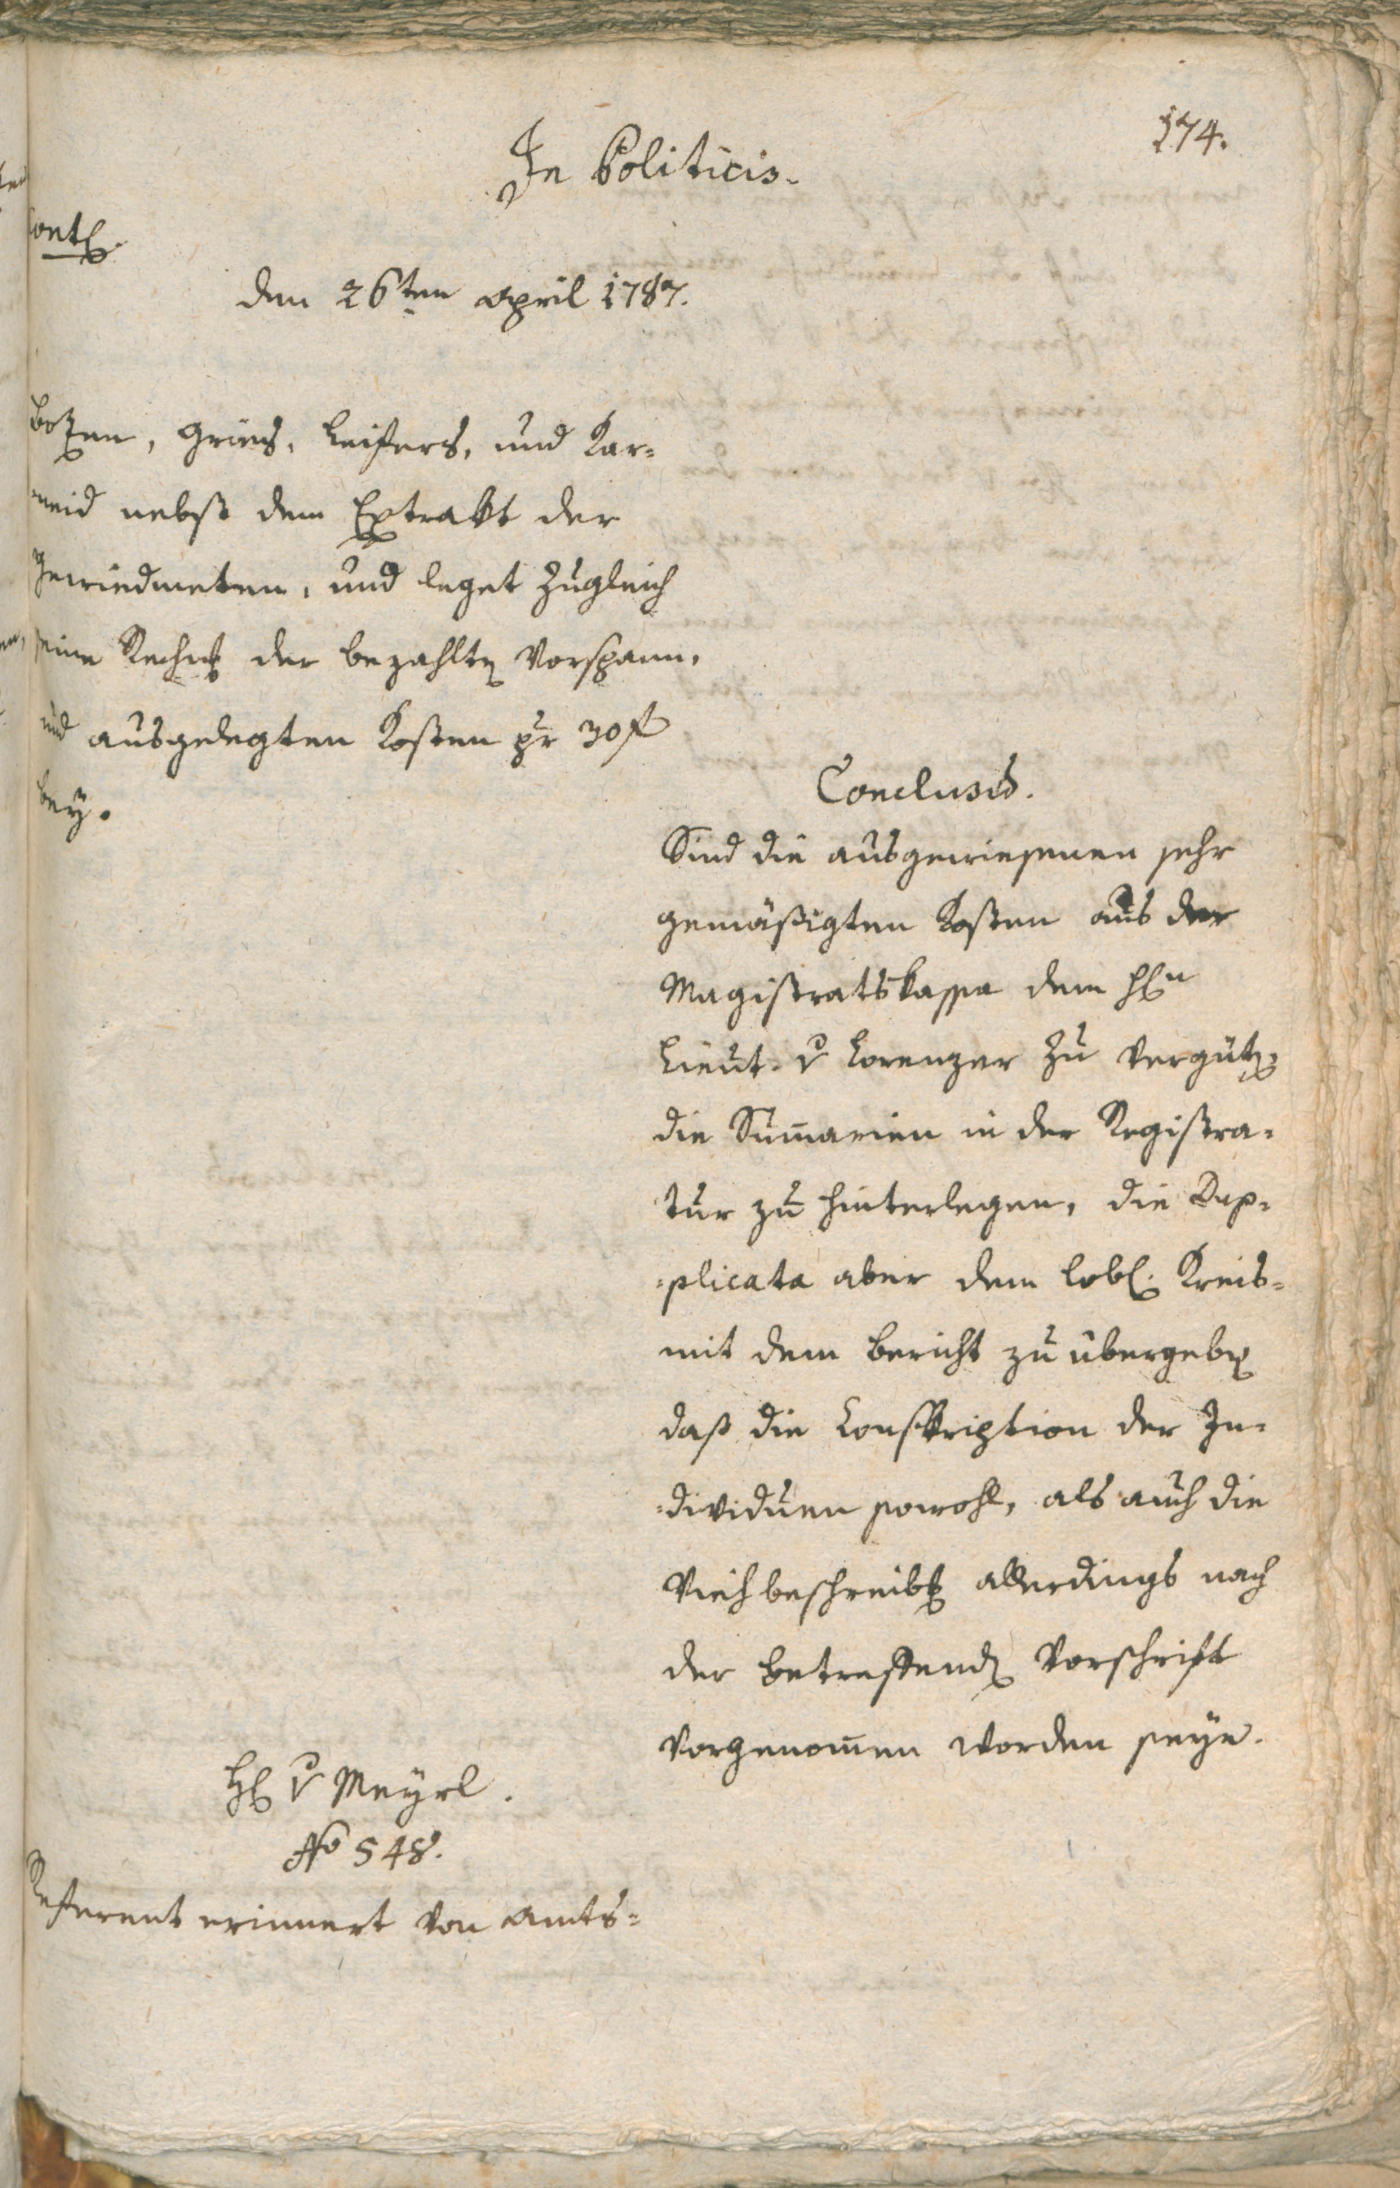 174.
In Politicis.
Cont.
den 26ten April 1787.
Botzen, Gries, Leifers, und Kar-
neid nebst dem Extrakt der
Gewiedmeten, und leget zugleich
seine Rechng der bezahltn Vorspann,
und ausgelegten Kosten pr 30 f
bey.
Conclusum.
Sind die ausgewiesenen sehr
gemäßigten Kosten aus der
Magistratskassa dem Hn
Lieut. v Lorenzer zu vergütn,
die Sum̄arien in der Registra-
tur zu hinterlegen, die Dup-
-plicata aber dem löbl. Kreis-
mit dem Bericht zu übergebn
daß die Conskription der In-
-dividuen sowohl, als auch die
Viehbeschreibg allerdings nach
der betreffendn Vorschrift
vorgenom̄en worden seye.
H v Meyrl.
No 548.
Referent erinnert von Amts-